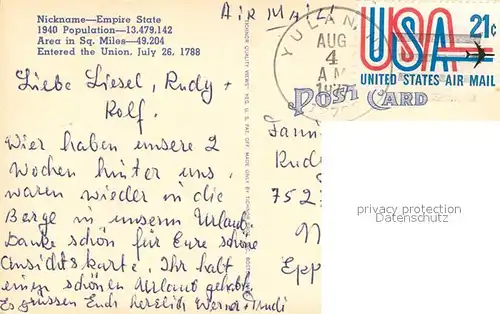 Nickname—Empire State
1940 Population—13.479.142
Area in Sq. Miles—49.204
Entered the Union, July 26, 1788
AIR MAIL
Liebe Liesel, Rudy +
Rolf.
Wier haben unsere 2
Wochen hinter uns,
waren wieder in die
Berge in unserm Urlaub.
Danke schön für Eure schöne
Ansichtskarte, Ihr habt
einen schönen Urlaub gehabt.
Es grüssen Euch herzlich Werner + Trudi
YULAN, N
AUG
4
AM
USA 21¢
UNITED STATES AIR MAIL
POST CARD
Rudy
752
Epp
privacy protection
Datenschutz